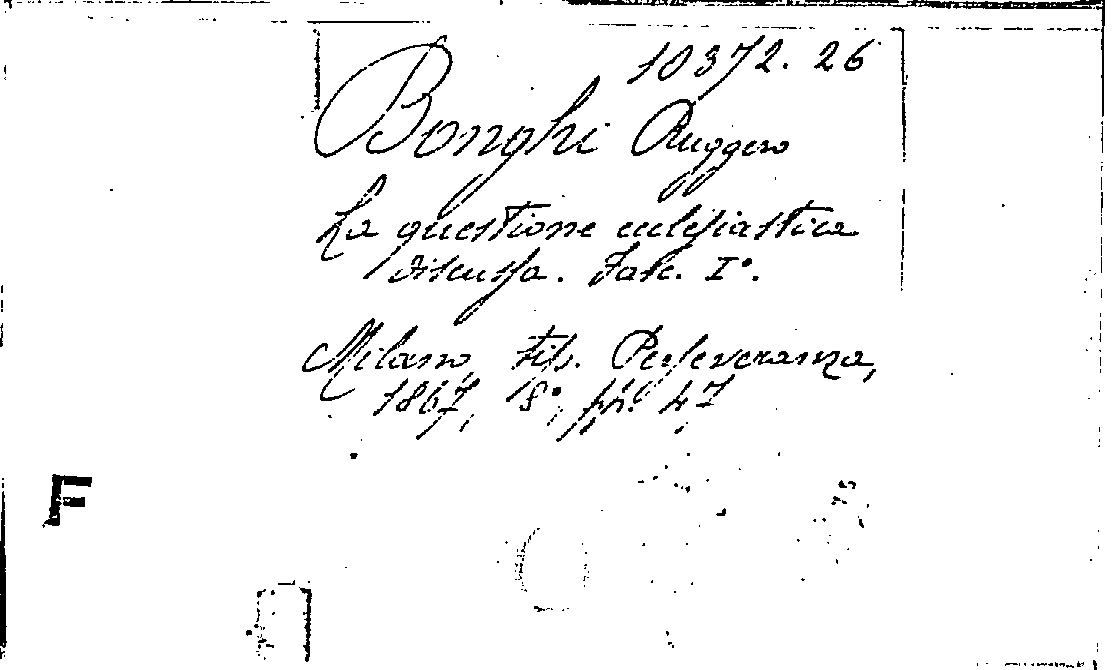 10372. 26
Bonghi Ruggero
La questione ecclesiastica
discussa. Fasc. I°.
Milano, tip. Perseveranza,
1867, 8°, pp. 47
F